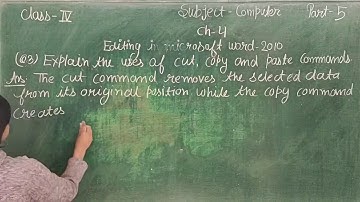 Class-IV Subject-Computer Part-5
Ch-4
Editing in microsoft word-2010
(Q3) Explain the uses of cut, copy and paste commands
Ans: The cut command removes the selected data
from its original position while the copy command
creates